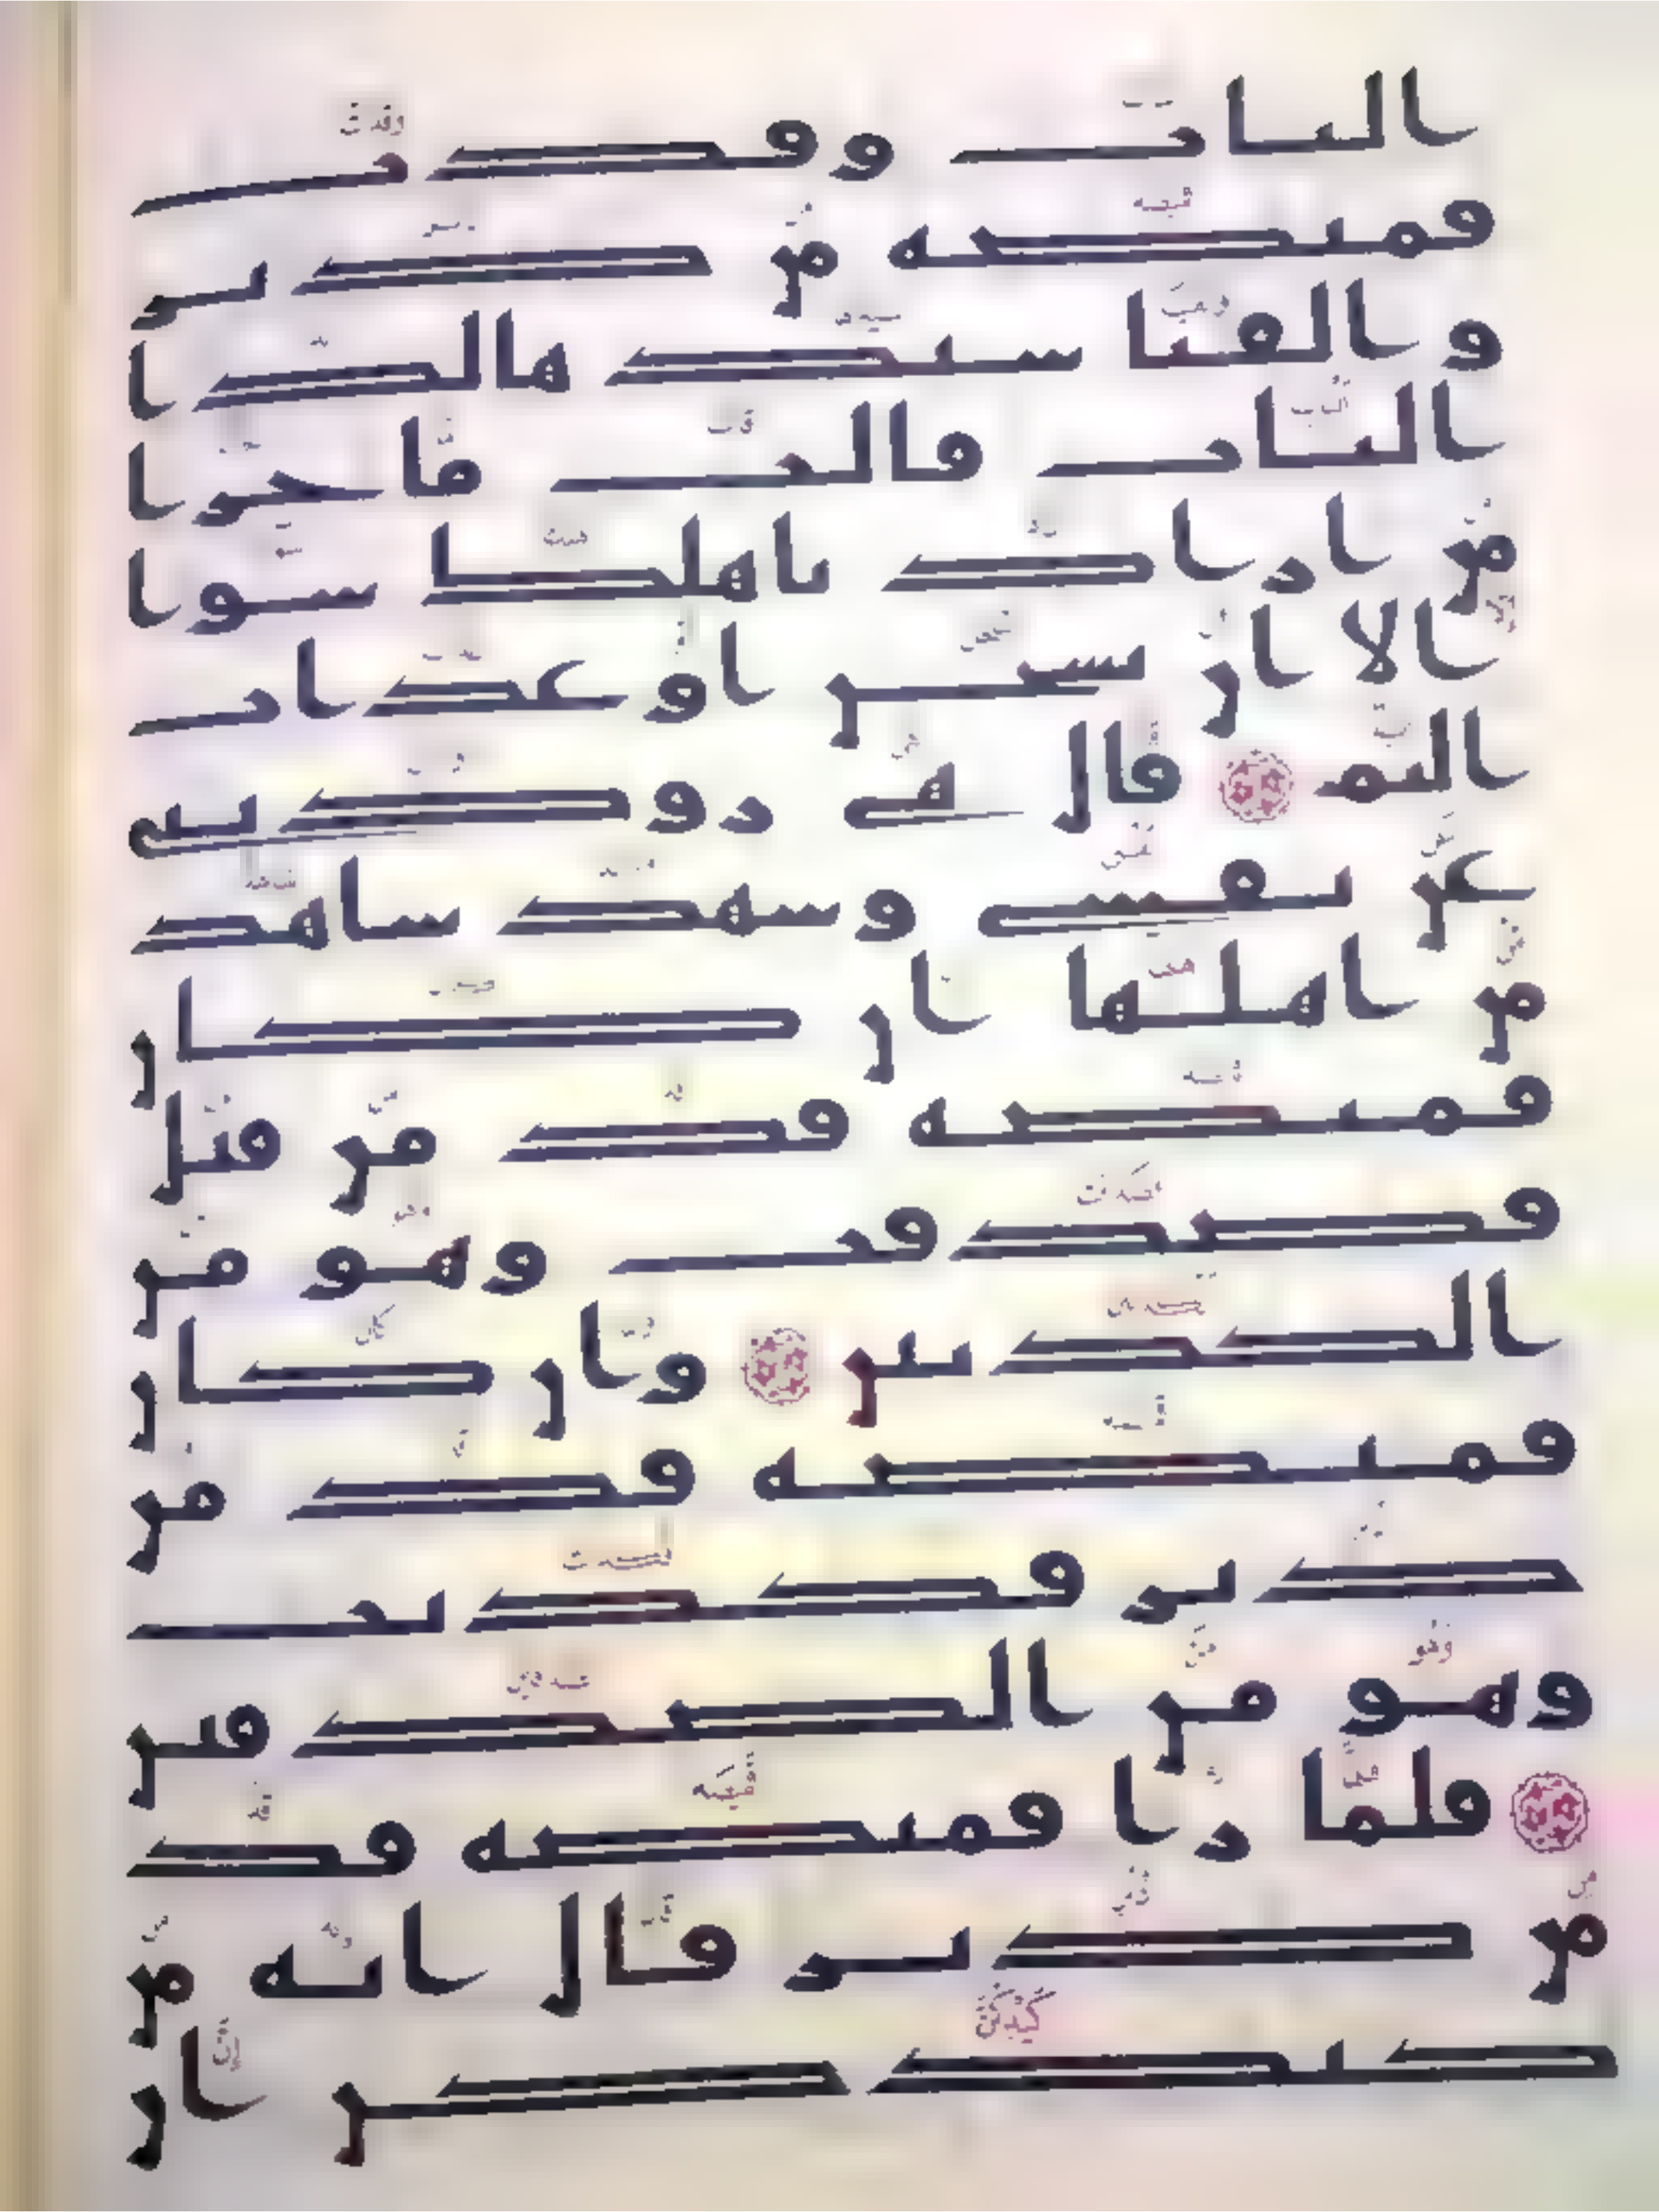 الباب وقدت
قميصه من دبر
و الفيا سيد هالدا
الباب قالت ما جزا
من اراد باهلك سوا
الا ان يسجن او عذاب
اليم قال هي رودتني
عن نفسي وشهد شاهد
من اهلها ان كان
قميصه قد من قبل
فصدقت وهو من
الكذبين وان كان
قميصه قد من
دبر فكذبت
وهو من الصدقين
فلما را قميصه قد
من دبر قال انه من
كيدكن ان